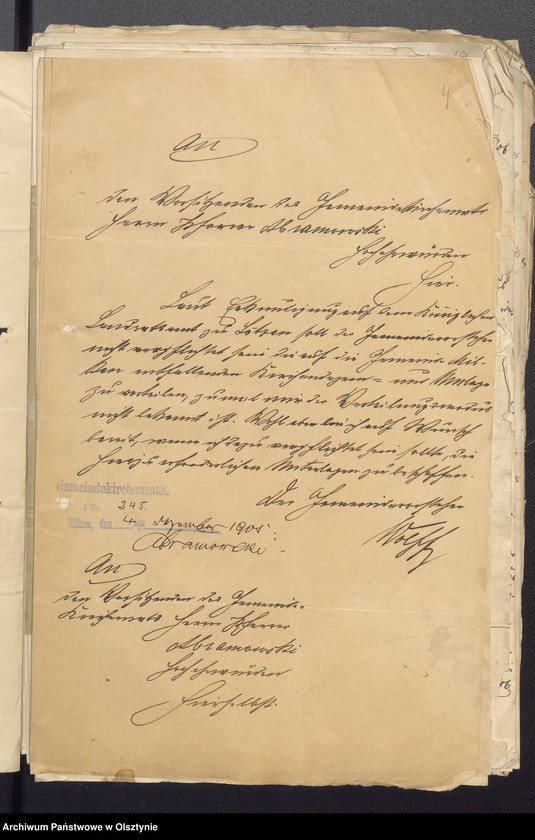 4
An
den Vorsitzenden des Gemeindekirchenrats
Herrn Pfarrer Abramowski
Hochehrwürden
Hier.
Laut Erkundigung auf dem Königlichen
Landratsamt zu Lötzen soll der Gemeindevorsteher
nicht verpflichtet sein die auf die Gemeinde Mil-
ken entfallenden Kirchen = und Umlage
zu verteilen, zumal mir der Verteilungsmodus
nicht bekannt ist. Wohl aber bin ich auf Wunsch
bereit, wenn ich dazu verpflichtet sein sollte, die
hierzu erforderlichen Unterlagen zu beschaffen.
Der Gemeindevorsteher
Wolff
Gemeindekirchenrath.
J No 245.
Milken, den 4. Dezember 1905.
Abramowski.
An
den Vorsitzenden des Gemeinde-
Kirchenrats Herrn Pfarrer
Abramowski
Hochehrwürden
Hierselbst.
Archiwum Państwowe w Olsztynie